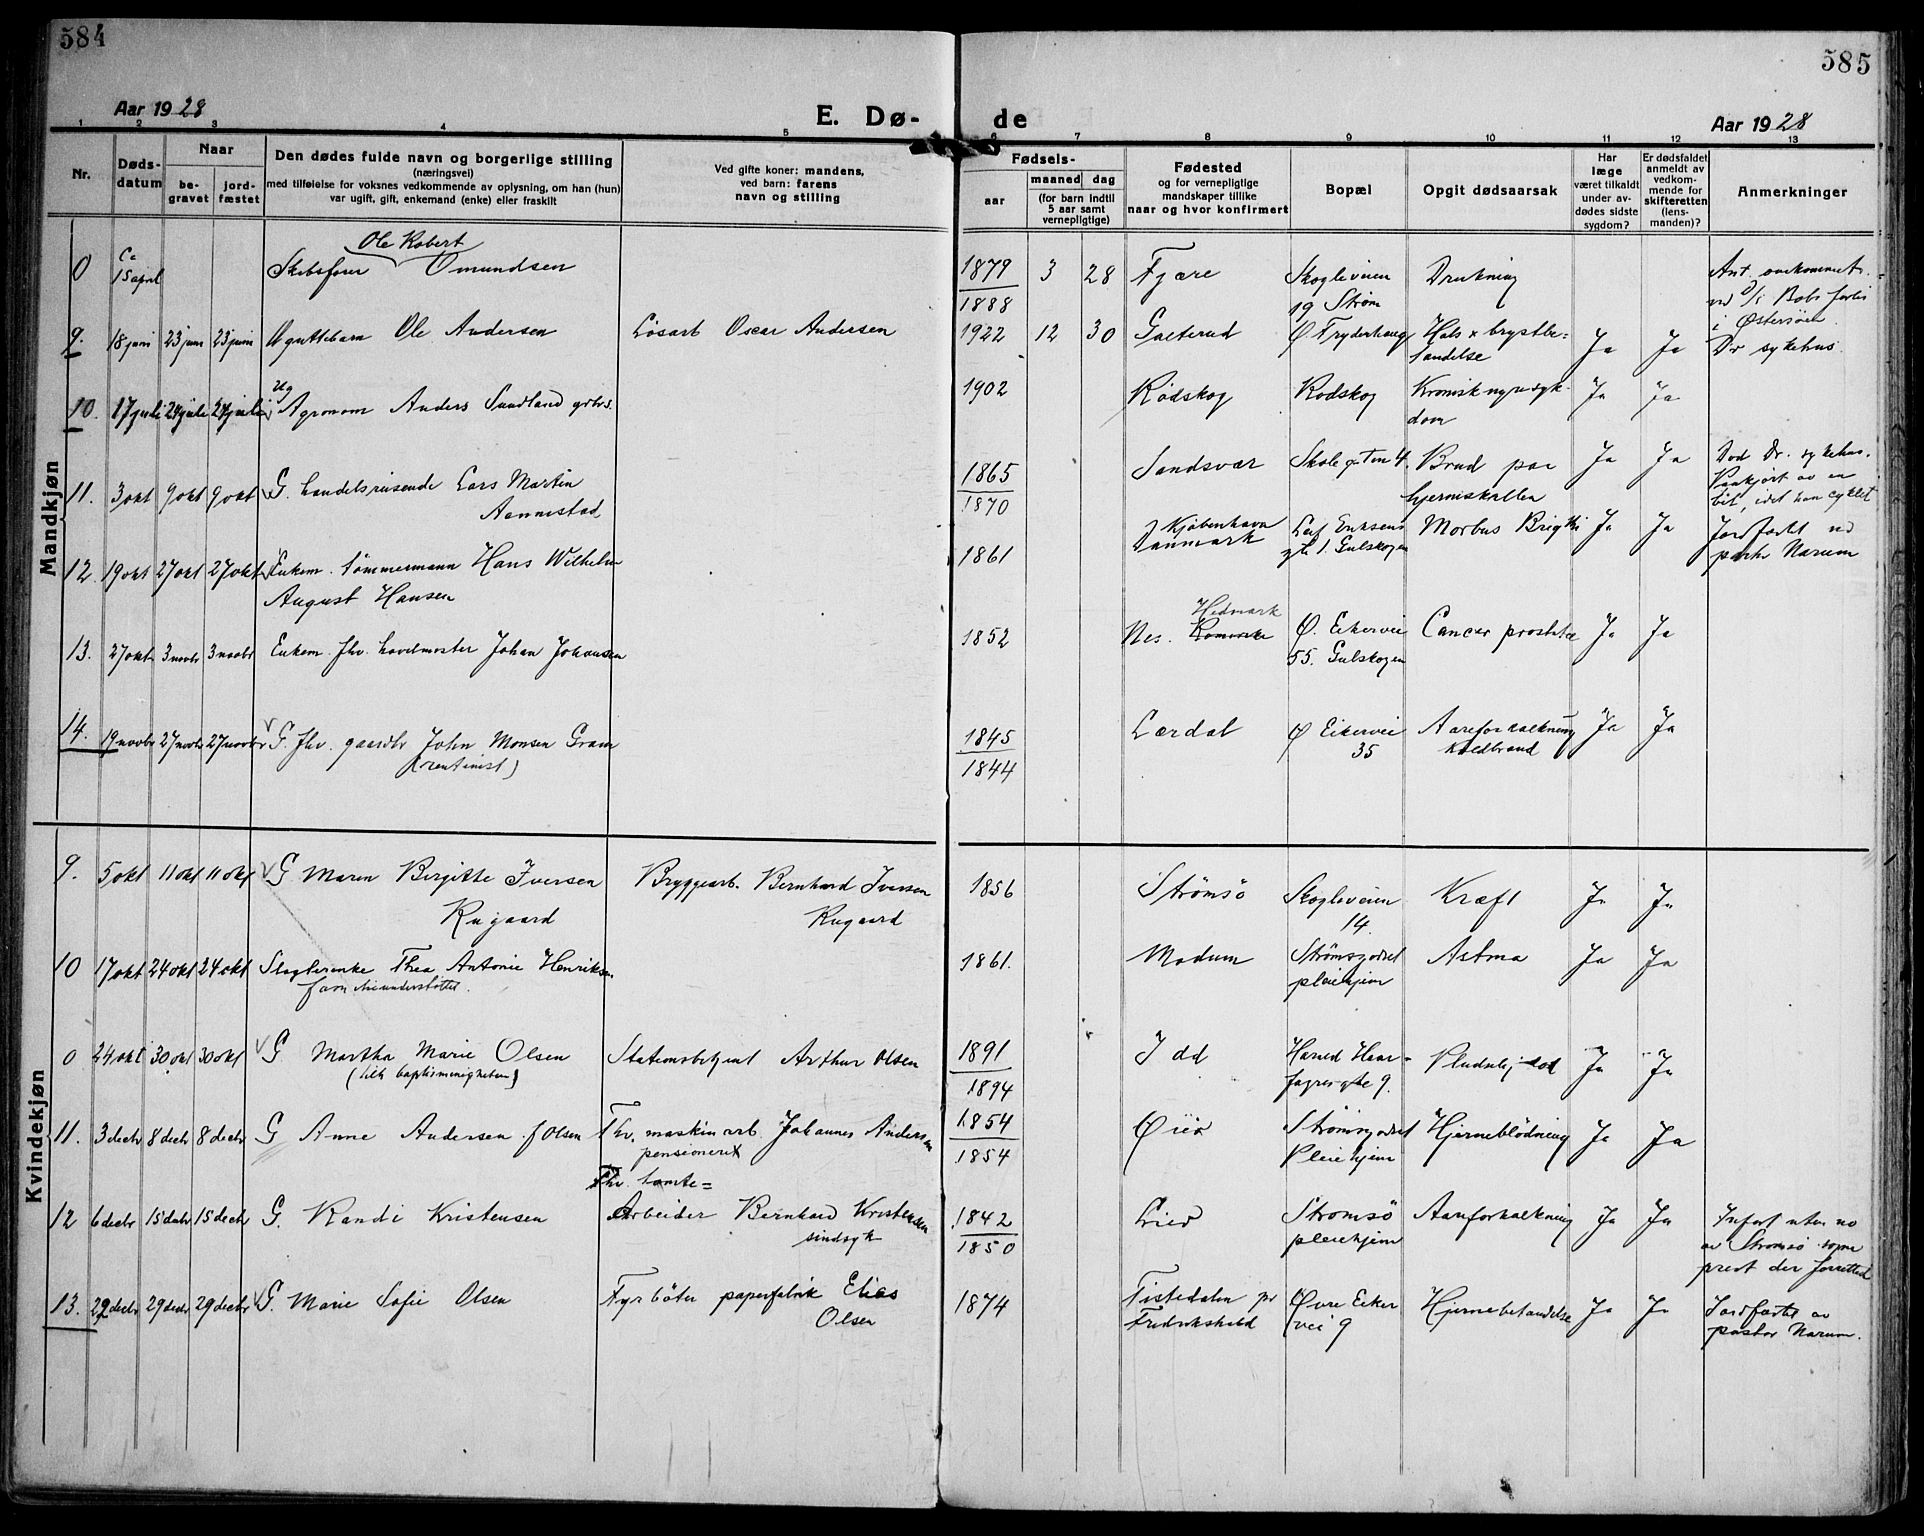 584
585
Aar 1928
E. Dø-
de
Aar 1928
1 2 3 4 5 6 7 8 9 10 11 12 13
Nr.
Døds-
datum
Naar
be-
gravet
jord-
fæstet
Den dødes fulde navn og borgerlige stilling
(næringsvei)
med tilføielse for voksnes vedkommende av oplysning, om han (hun)
var ugift, gift, enkemand (enke) eller fraskilt
Ved gifte koner: mandens,
ved barn: farens
navn og stilling
Fødsels-
aar
maaned dag
(for barn indtil
5 aar samt
vernepligtige)
Fødested
og for vernepligtige
mandskaper tillike
naar og hvor konfirmert
Bopæl
Opgit dødsaarsak
Har
læge
været tilkaldt
under av-
dødes sidste
sygdom?
Er dødsfaldet
anmeldt av
vedkom-
mende for
skifteretten
(lens-
manden)?
Anmerkninger
Mandkjøn
0 Ca 15 april Skibsfører Ole Robert Omundsen 1879 3 28 Fjære Skogliveien Drukning Ant. omkommet
1888 19 Strøm
i Østersøen
9. 18 juni 23 juni 23 juni Ole Andersen Løsarb Oscar Andersen 1922 12 30 Gulterud Ø. Fryderhaug Hals x brystbe- Ja Ja Dr sykehus.
tændelse
10. 17 juli 24 juli 24 juli Ug Agronom Anders Sundland 1902 Rødskog Rødskog Kronisk nyresyk- Ja Ja
dom
11. 3 okt 9 okt 9 okt G. handelsreisende Lars Martin 1865 Sandsvær Skolegaten 4. Brud paa Ja Ja Død Dr. sykehus.
Aennestad 1870 hjerneskallen Paakjørt av en
bil, idet han cyklet
12. 19 okt 27 okt 27 okt Enkem. tømmermann Hans Wilhelm 1861 Kjøbenhavn Leif Eriksens Morbus Brigthi Ja Ja Jordfæstet ved
August Hansen Danmark gt. 1. Gulskogen pastor Narum
13. 27 okt 3 novbr 3 novbr Enkem. fhv. havelmester Johan Johansen 1852 Nes. Hedmark Ø. Eikervei Cancer prostatæ Ja Ja
55. Gulskogen
14. 19 novbr 27 novbr 27 novbr G. fhv. gaardbr John Monsen Gram 1845 Lærdal Ø Eikervei Aareforkalkning Ja Ja
(rentenist) 1844 35 koldbrand
Kvindekjøn
9. 5 okt 11 okt 11 okt G Maren Birgitte Iversen Bryggearb. Bernhard Iversen 1856 Strømsø Skogliveien Kræft Ja Ja
Rugaard Rugaard 14.
10 17 okt 24 okt 24 okt Slagterenke Thea Antonie Henriksen 1861. Modum Strømsgodset Astma Ja Ja
form. understøttet. pleiehjem
0 24 okt 30 okt 30 okt G Martha Marie Olsen Stationsbetjent Arthur Olsen 1891 Idd Harald Haar- Pludselig død Ja Ja
(tilh baptismenigheten) 1894 fagres gte 9.
11. 3 decbr 8 decbr 8 decbr G Anne Andersen f Olsen Fhv. maskinarb. Johannes Andersen 1854 Øiер Strømsgodset Hjerneblødning Ja Ja
pensioneret 1854 Pleiehjem
Fhv. tomte=
12 6 decbr 15 decbr 15 decbr G. Randi Kristensen Arbeider Bernhard Kristensen 1842 Lier Strømsø Aareforkalkning Ja Ja Infort uten no
sindsyk 1850 pleiehjem av Strømsø sogne
prest der forrettet
13. 22 decbr 29 decbr 29 decbr G. Marie Sofie Olsen Fyrbøter papirfabrik Elias 1874 Tistedalen pr Øvre Eiker Hjernebetændelse Ja Ja Jordfæstet av
Olsen Fredrikshald vei 9 pastor Narum.